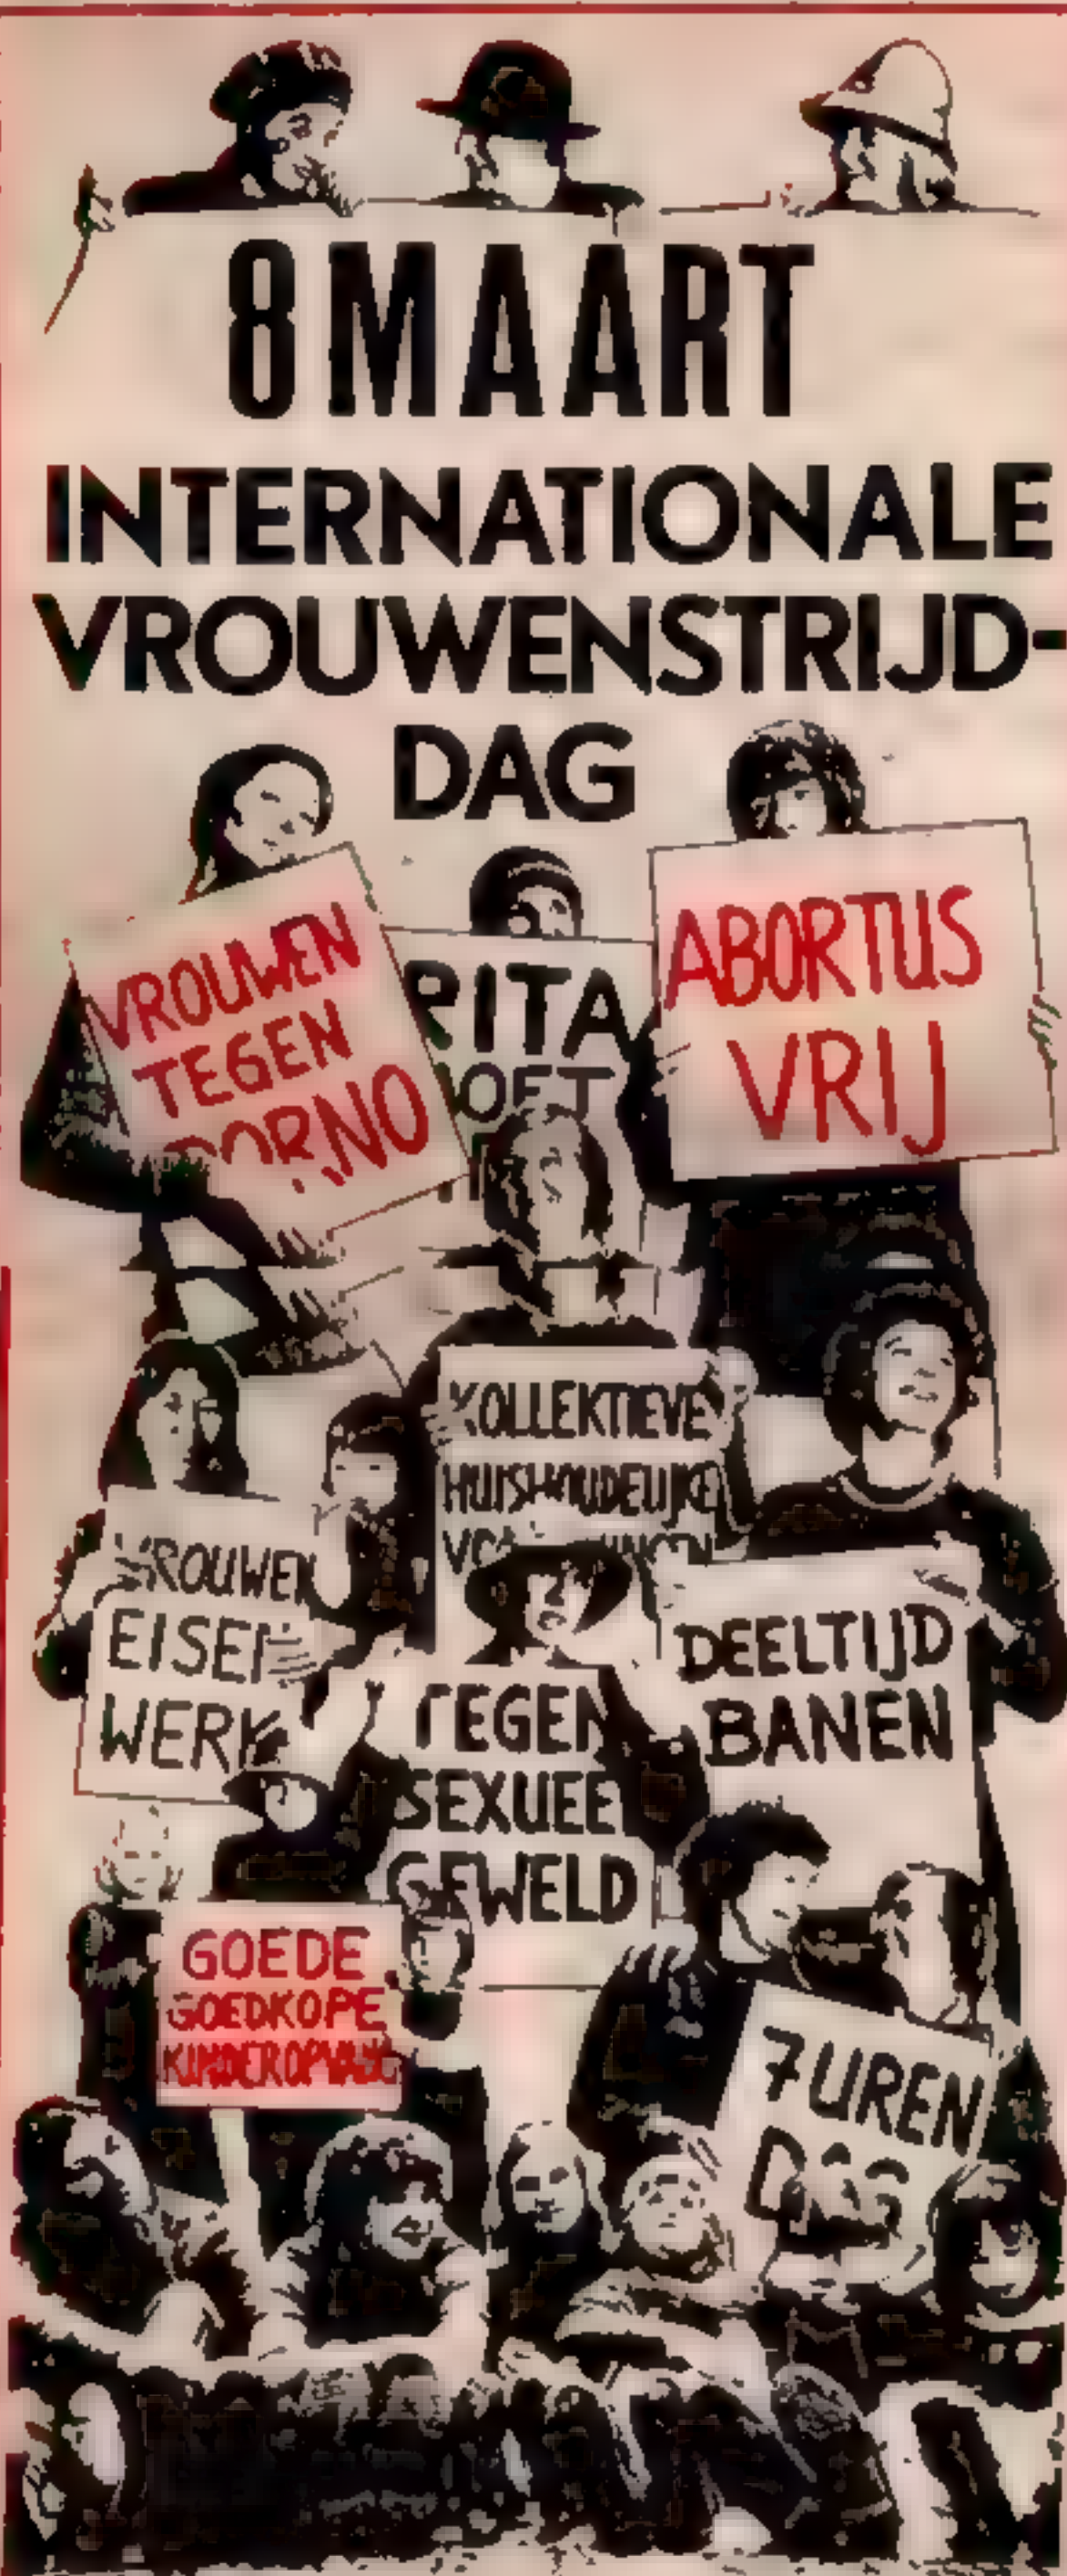 8 MAART
INTERNATIONALE
VROUWENSTRIJD-
DAG
VROUWEN
TEGEN
PORNO
RITA
ABORTUS
VRIJ
KOLLEKTIEVE
HUISHOUDELIJKE
VROUWEN
EISEN
WERK
DEELTIJD
BANEN
TEGEN
SEXUEEL
GEWELD
GOEDE
GOEDKOPE
KINDEROPVANG
7 UREN
DAG